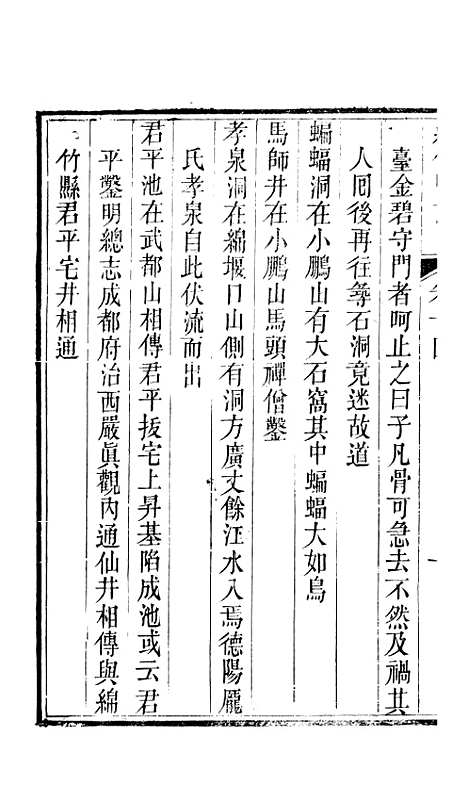 臺金碧守門者呵止之曰子凡骨可急去不然及禍其
人囘後再往尋石洞竟迷故道
蝙蝠洞在小鵬山有大石窩其中蝙蝠大如烏
馬師井在小鵬山馬頭禪僧鑿
孝泉洞在綿堰口山側有洞方廣丈餘江水入焉德陽龐
氏孝泉自此伏流而出
君平池在武都山相傳君平拔宅上昇基陷成池或云君
平鑿明總志成都府治西嚴眞觀內通仙井相傳與綿
竹縣君平宅井相通